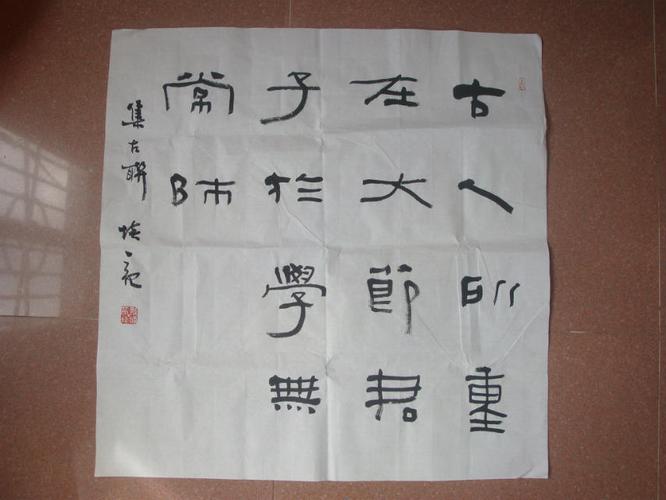 古人所重
在大節君
子於學無
常師
集古聯